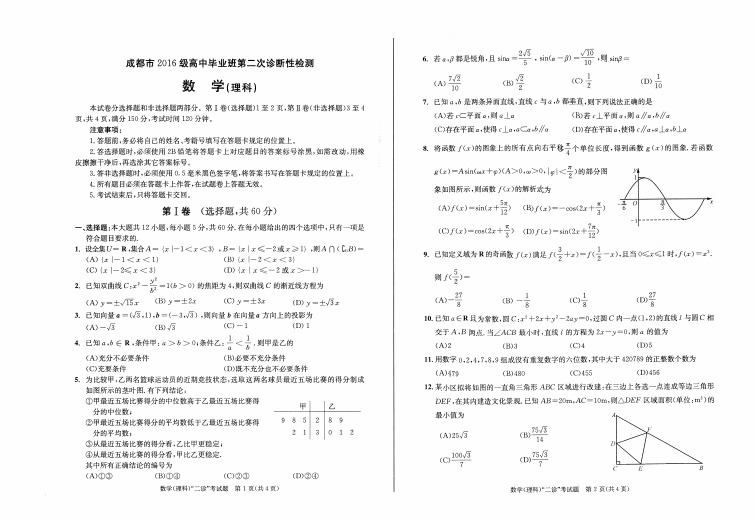 成都市2016级高中毕业班第二次诊断性检测
数 学(理科)
本试卷分选择题和非选择题两部分。第Ⅰ卷(选择题)1至2页,第Ⅱ卷(非选择题)3至4
页,共4页,满分150分,考试时间120分钟。
注意事项:
1.答题前,务必将自己的姓名、考籍号填写在答题卡规定的位置上。
2.答选择题时,必须使用2B铅笔将答题卡上对应题目的答案标号涂黑,如需改动,用橡
皮擦擦干净后,再选涂其它答案标号。
3.答非选择题时,必须使用0.5毫米黑色签字笔,将答案书写在答题卡规定的位置上。
4.所有题目必须在答题卡上作答,在试题卷上答题无效。
5.考试结束后,只将答题卡交回。
第Ⅰ卷 (选择题,共60分)
一、选择题:本大题共12小题,每小题5分,共60分.在每小题给出的四个选项中,只有一项是
符合题目要求的.
1. 设全集U=R,集合A={x|-1<x<3},B={x|x≤-2或x≥1},则A∩(∁UB)=
(A){x|-1<x<1} (B){x|-2<x<3}
(C){x|-2≤x<3} (D){x|x≤-2或x>-1}
2. 已知双曲线C:x²-y²/b²=1(b>0)的焦距为4,则双曲线C的渐近线方程为
(A)y=±√15x (B)y=±2x (C)y=±3x (D)y=±√3x
3. 已知向量a=(√3,1),b=(-3,√3),则向量b在向量a方向上的投影为
(A)-√3 (B)√3 (C)-1 (D)1
4. 已知a,b∈R,条件甲:a>b>0;条件乙:1/a<1/b,则甲是乙的
(A)充分不必要条件 (B)必要不充分条件
(C)充要条件 (D)既不充分也不必要条件
5. 为比较甲、乙两名篮球运动员的近期竞技状态,选取这两名球员最近五场比赛的得分制成
如图所示的茎叶图.有下列结论:
①甲最近五场比赛的得分中位数高于乙最近五场比赛得
分的中位数;
②甲最近五场比赛的得分平均数低于乙最近五场比赛得
分的平均数;
③从最近五场比赛的得分看,乙比甲更稳定;
④从最近五场比赛的得分看,甲比乙更稳定.
其中所有正确结论的编号为
(A)①③ (B)①④ (C)②③ (D)②④
甲 乙
9 8 5 2 8 9
2 1 3 0 1 2
数学(理科)“二诊”考试题 第1页(共4页)
6. 若α,β都是锐角,且sinα=2√5/5,sin(α-β)=√10/10,则sinβ=
(A)7√2/10 (B)√2/2 (C)1/2 (D)1/10
7. 已知a,b是两条异面直线,直线c与a,b都垂直,则下列说法正确的是
(A)若c⊂平面α,则a⊥α (B)若c⊥平面α,则a∥α,b∥α
(C)存在平面α,使得c⊥α,a⊂α,b∥α (D)存在平面α,使得c∥α,a⊥α,b⊥α
8. 将函数f(x)的图象上的所有点向右平移π/4个单位长度,得到函数g(x)的图象.若函数
g(x)=Asin(ωx+φ)(A>0,ω>0,|φ|<π/2)的部分图
象如图所示,则函数f(x)的解析式为
(A)f(x)=sin(x+5π/12) (B)f(x)=-cos(2x+π/3)
(C)f(x)=cos(2x+π/3) (D)f(x)=sin(2x+7π/12)
y
1
-π/6 O π/3 x
-1
9. 已知定义域为R的奇函数f(x)满足f(3/2+x)=f(1/2-x),且当0≤x≤1时,f(x)=x³.
则f(5/2)=
(A)-27/8 (B)-1/8 (C)1/8 (D)27/8
10. 已知a∈R且为常数,圆C:x²+2x+y²-2ay=0,过圆C内一点(1,2)的直线l与圆C相
交于A,B两点.当∠ACB最小时,直线l的方程为2x-y=0,则a的值为
(A)2 (B)3 (C)4 (D)5
11. 用数字0,2,4,7,8,9组成没有重复数字的六位数,其中大于420789的正整数个数为
(A)479 (B)480 (C)455 (D)456
12. 某小区拟将如图的一直角三角形ABC区域进行改建:在三边上各选一点连成等边三角形
DEF,在其内建造文化景观.已知AB=20m,AC=10m,则△DEF区域面积(单位:m²)的
最小值为
(A)25√3 (B)75√3/14
(C)100√3/7 (D)75√3/7
A
F
D
C E B
数学(理科)“二诊”考试题 第2页(共4页)